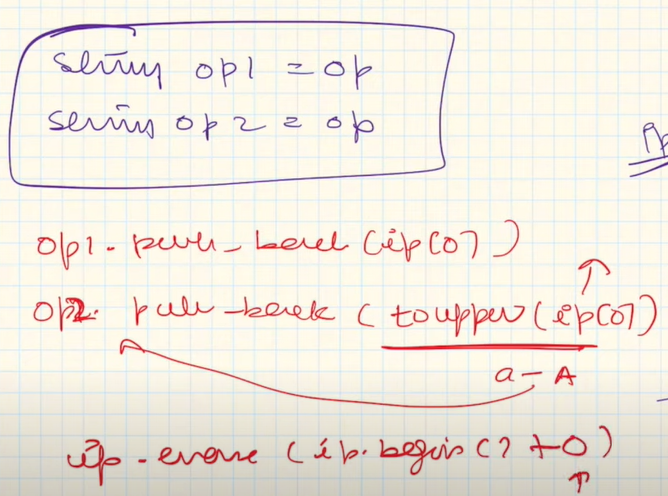 string op1 = op
string op2 = op
op1.push_back(ip[0])
op2.push_back(toupper(ip[0])
a - A
ip.erase(ip.begin()+0)